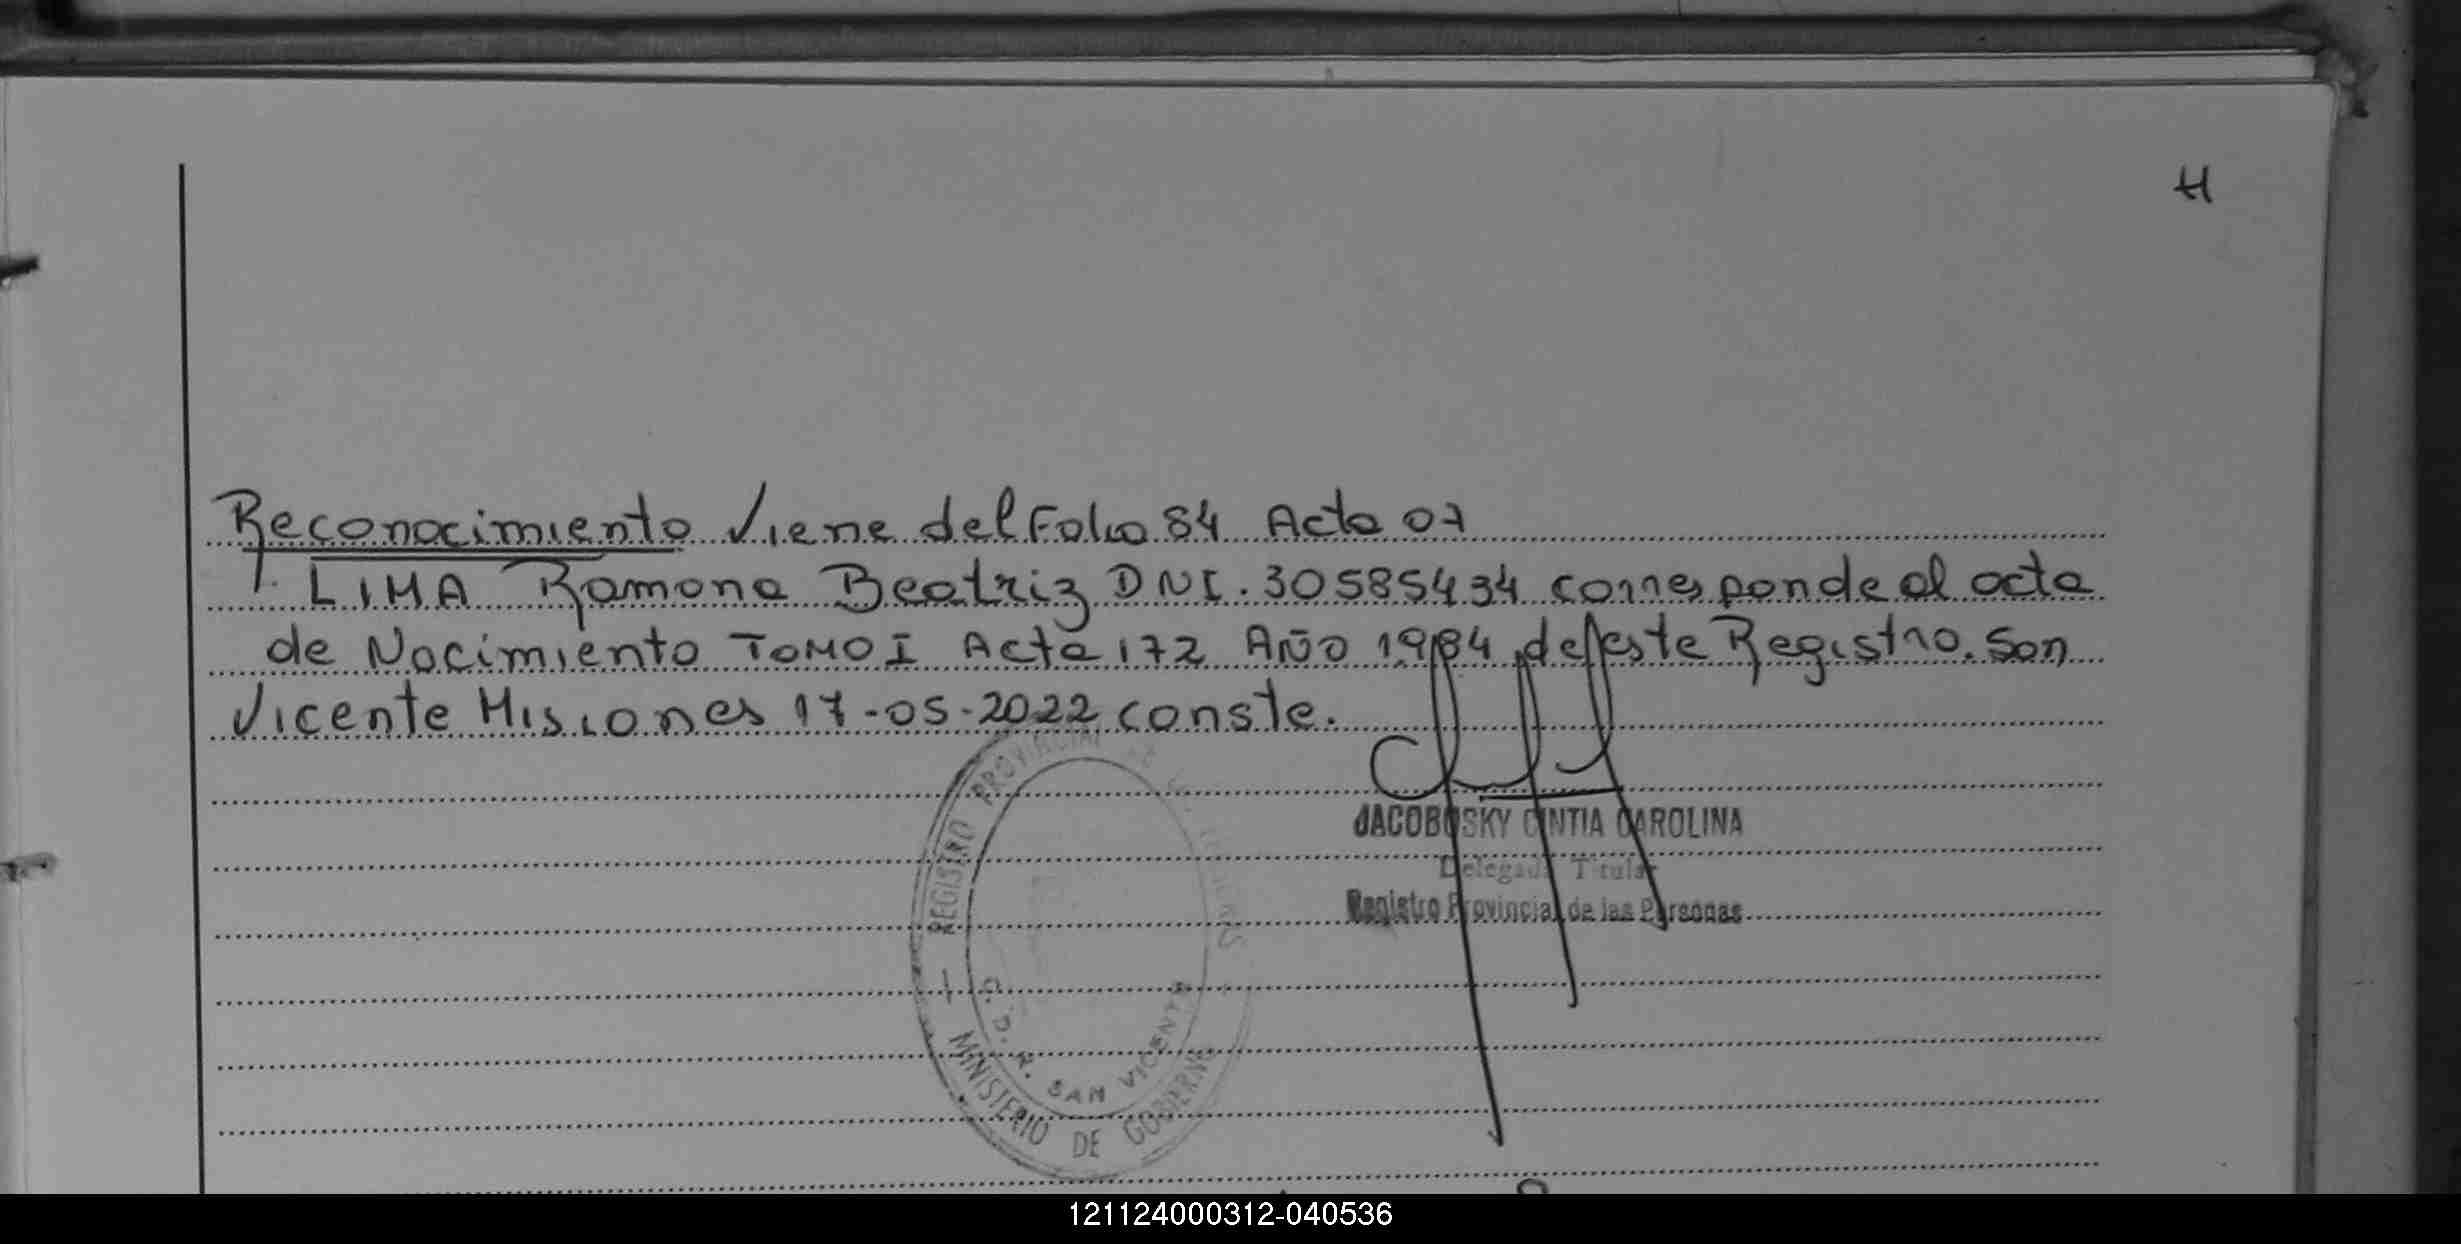 H
Reconocimiento Viene del Folio 84 Acta 07
LIMA Ramona Beatriz DNI. 30585434 corresponde al acta
de Nacimiento TOMO I Acta 172 Año 1984 de este Registro. San
Vicente Misiones 17-05-2022 conste.
JACOBOSKY CINTIA CAROLINA
Delegada Titular
Registro Provincial de las Personas
REGISTRO PROVINCIAL DE LAS PERSONAS
C. D. R. SAN VICENTE
MINISTERIO DE GOBIERNO
121124000312-040536